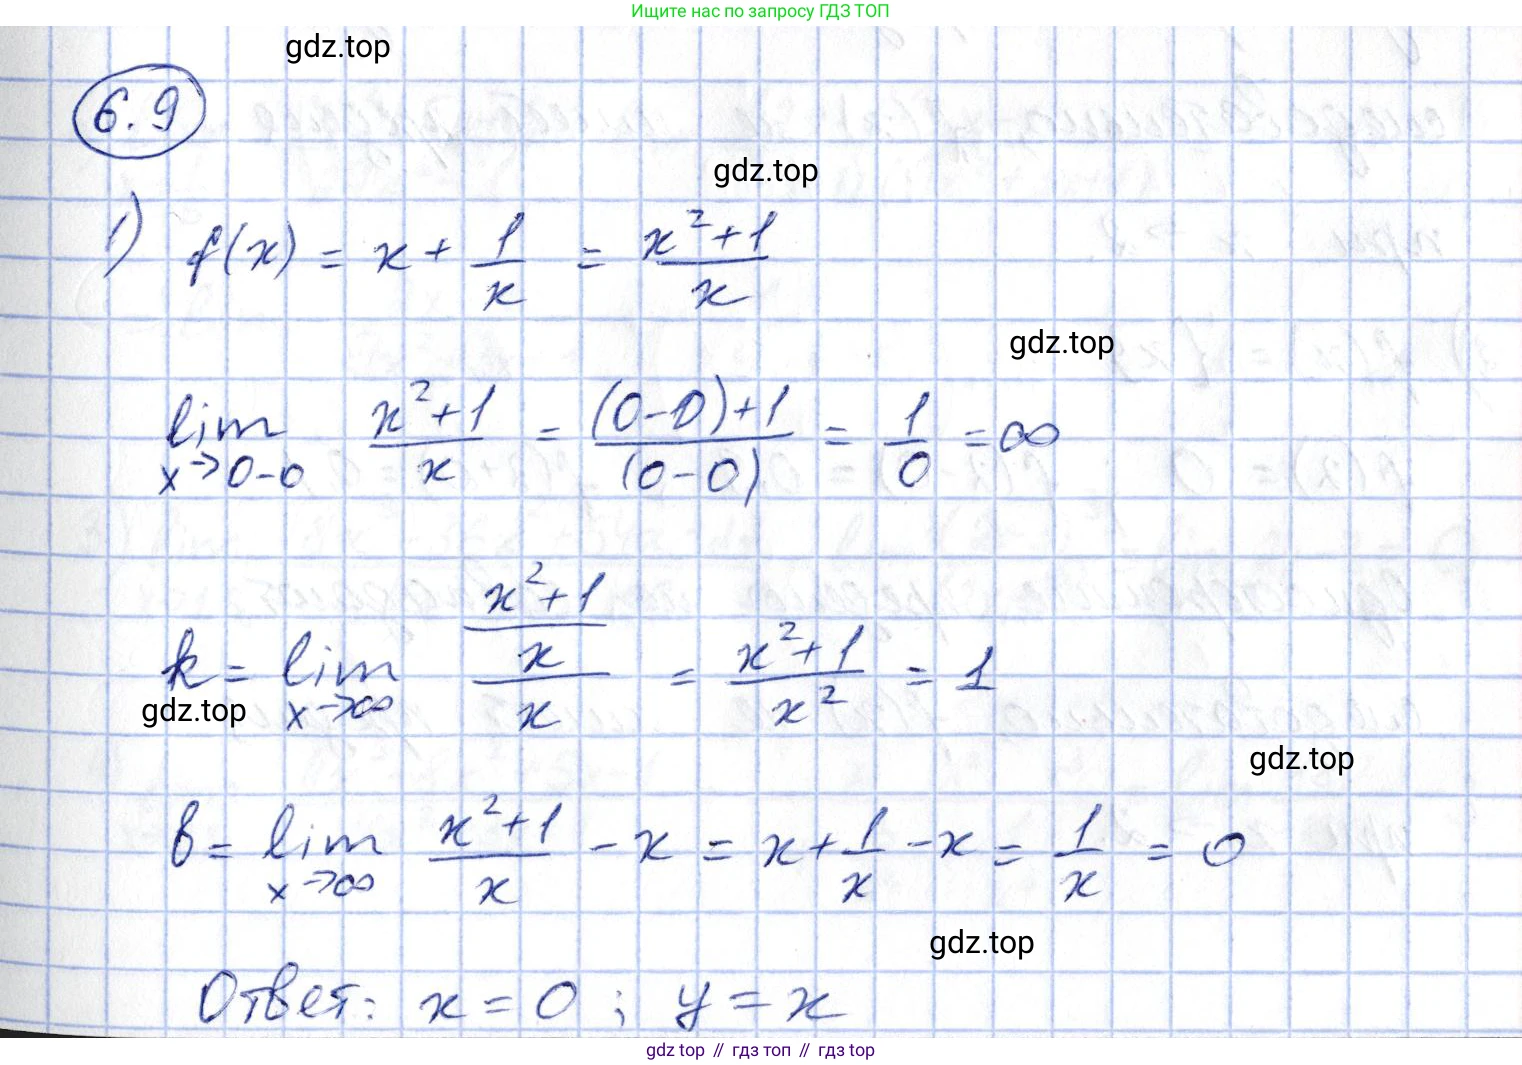 Ищите нас по запросу ГДЗ ТОП
gdz.top
6.9
gdz.top
1) f(x) = x + 1/x = (x²+1)/x
gdz.top
lim x→0-0 (x²+1)/x = ((0-0)+1)/(0-0) = 1/0 = ∞
k = lim x→∞ ((x²+1)/x)/x = (x²+1)/x² = 1
gdz.top
gdz.top
b = lim x→∞ (x²+1)/x - x = x + 1/x - x = 1/x = 0
gdz.top
Ответ: x = 0 ; y = x
gdz top // гдз топ // гдз top